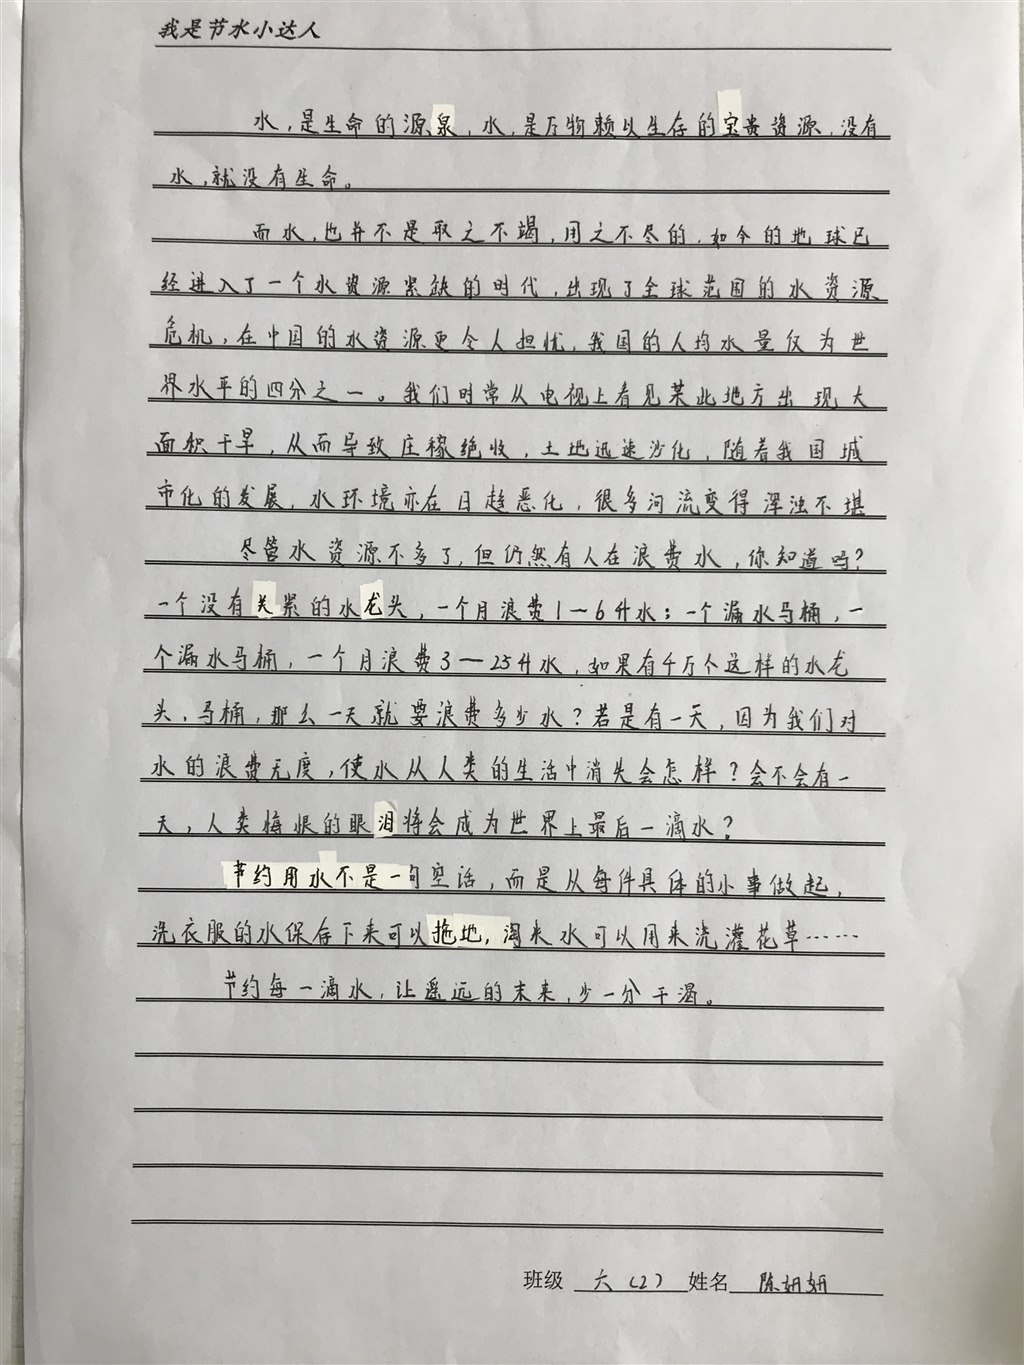 我是节水小达人
水，是生命的源泉，水，是万物赖以生存的宝贵资源，没有
水，就没有生命。
而水，也并不是取之不竭，用之不尽的，如今的地球已
经进入了一个水资源紧缺的时代，出现了全球范围的水资源
危机，在中国的水资源更令人担忧，我国的人均水量仅为世
界水平的四分之一。我们时常从电视上看见某些地方出现大
面积干旱，从而导致庄稼绝收，土地迅速沙化，随着我国城
市化的发展，水环境亦在日趋恶化，很多河流变得浑浊不堪
尽管水资源不多了，但仍然有人在浪费水，你知道吗？
一个没有关紧的水龙头，一个月浪费1—6升水；一个漏水马桶，一
个漏水马桶，一个月浪费3—25升水，如果有千万个这样的水龙
头，马桶，那么一天就要浪费多少水？若是有一天，因为我们对
水的浪费无度，使水从人类的生活中消失会怎样？会不会有一
天，人类悔恨的眼泪将会成为世界上最后一滴水？
节约用水不是一句空话，而是从每件具体的小事做起，
洗衣服的水保存下来可以拖地，淘米水可以用来浇灌花草……
节约每一滴水，让遥远的未来，少一分干渴。
班级 六（2） 姓名 陈妍妍